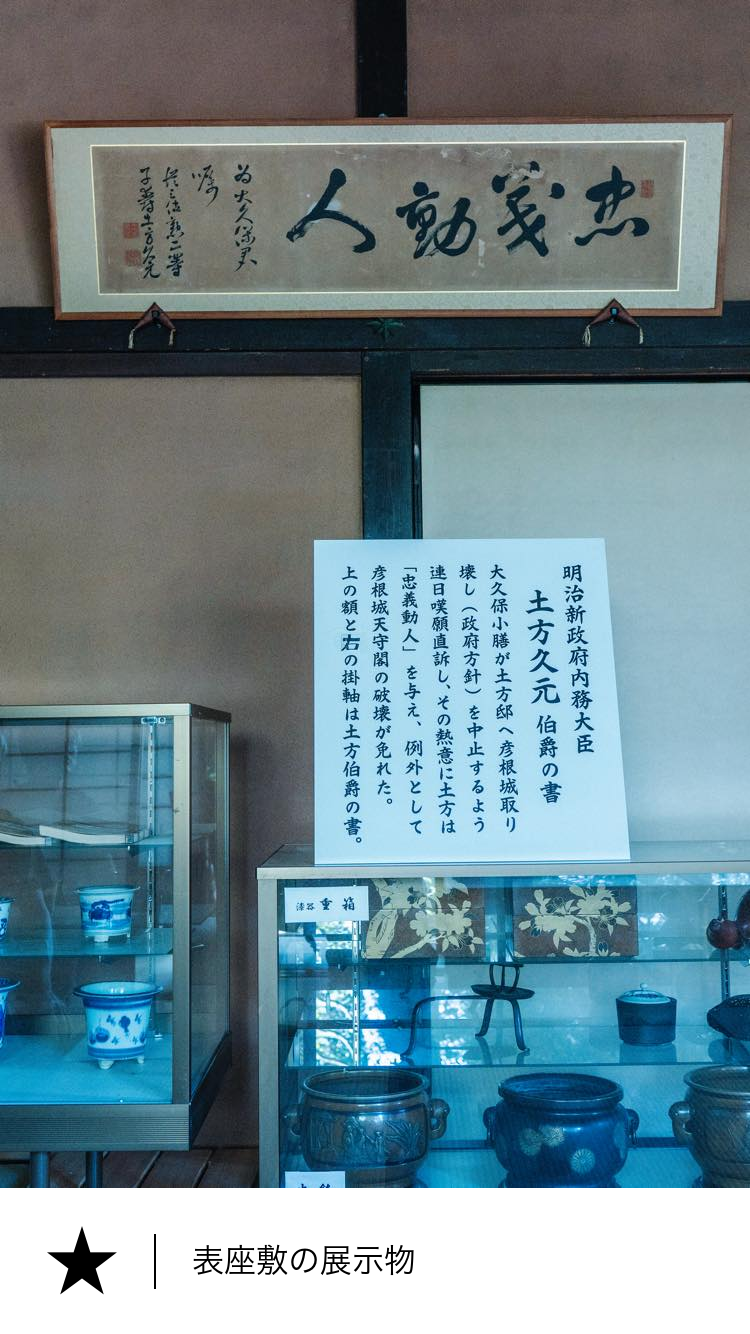 忠義動人
為大久保君
嘱
従三位勲二等
子爵土方久元
明治新政府内務大臣
土方久元 伯爵の書
大久保小膳が土方邸へ彦根城取り
壊し(政府方針)を中止するよう
連日嘆願直訴し、その熱意に土方は
「忠義動人」を与え、例外として
彦根城天守閣の破壊が免れた。
上の額と右の掛軸は土方伯爵の書。
漆器 重箱
表座敷の展示物